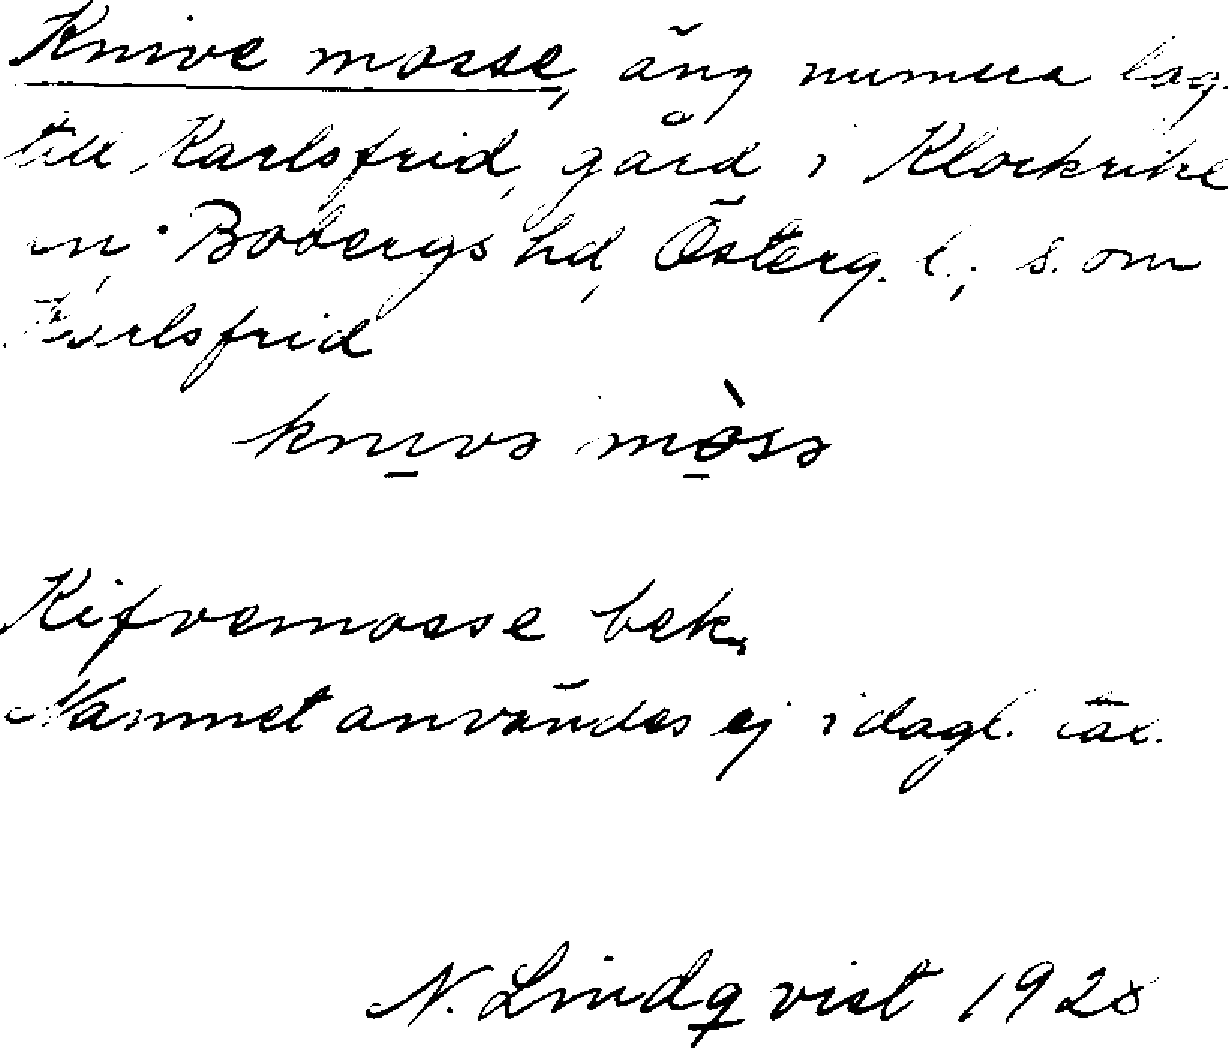 Knive mosse, äng numera lag.
till Karlsfrid, gård i Klockrike
sn, Bobergs hd, Österg. l.; s. om
Karlsfrid
knivə mòsə
Kifvemosse bek.
Namnet användes ej i dagl. tal.
N. Lindqvist 1928